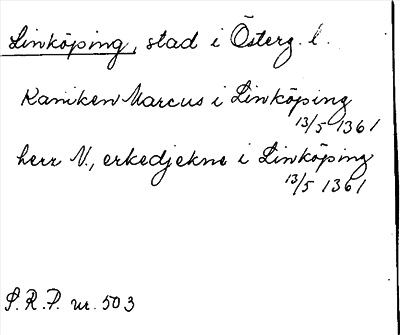 Linköping, stad i Österg. l.
Kaniken Marcus i Linköping
13/5 1361
herr N., erkedjekne i Linköping
13/5 1361
S.R.P. nr. 503